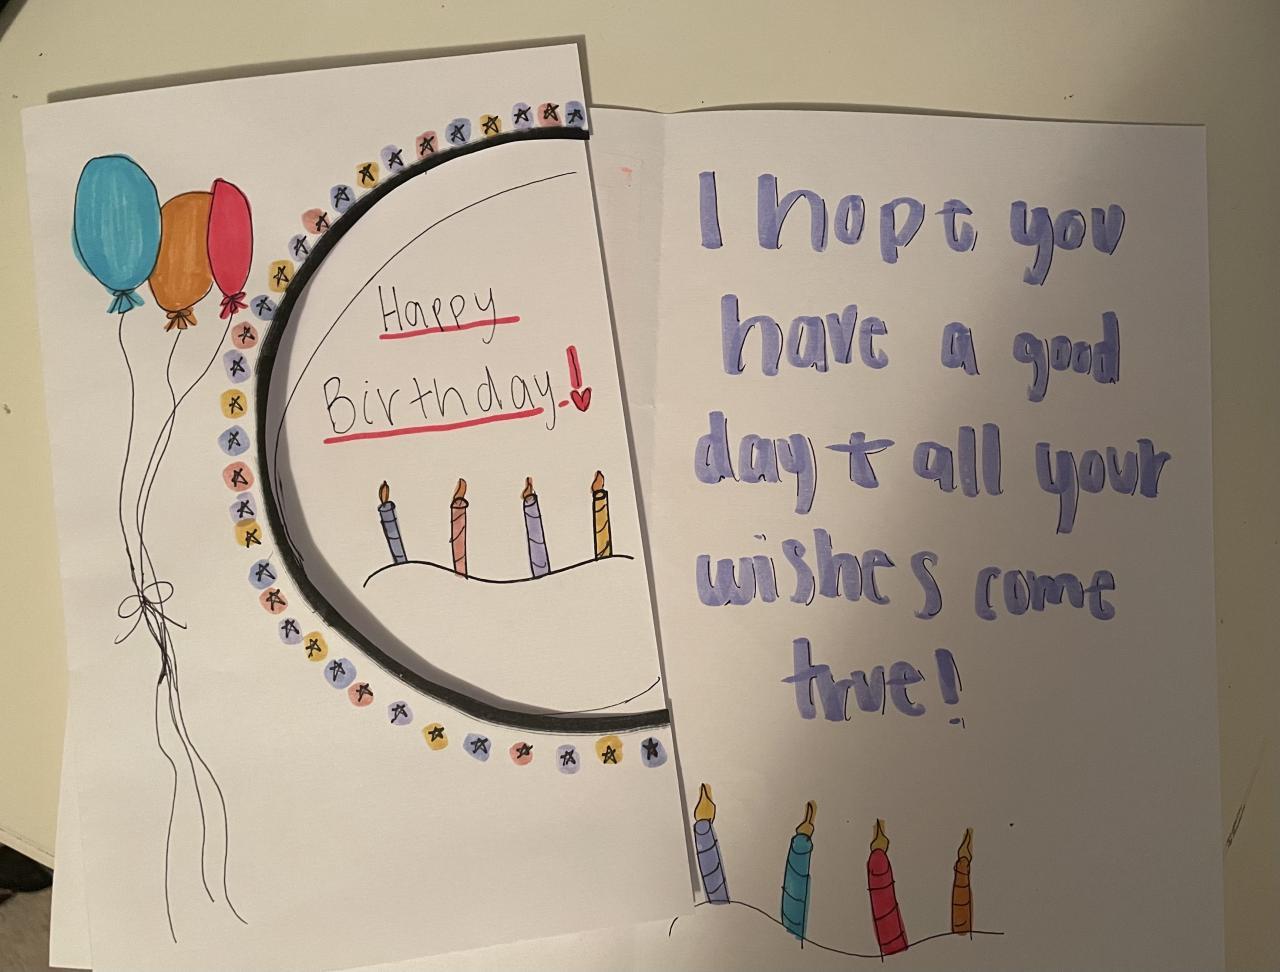 Happy
Birthday!
I hope you
have a good
day + all your
wishes come
true!